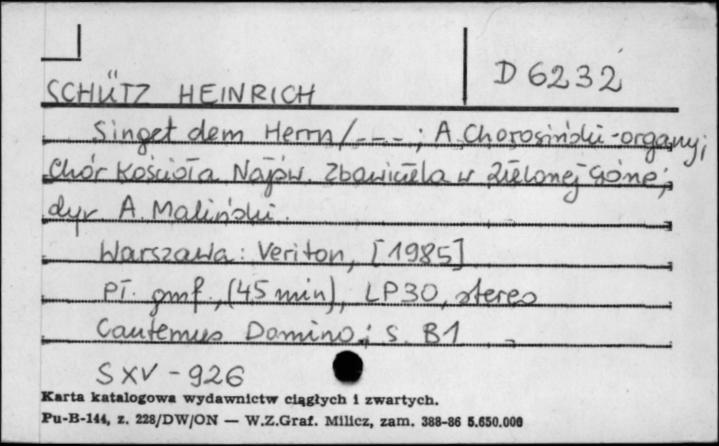 D 6232
SCHÜTZ HEINRICH
Singet dem Herrn / _ _ _ ; A. Chorosiński - organy;
Chór Kościoła Najśw. Zbawiciela w Zielonej Górze;
dyr A. Maliński.
Warszawa: Veriton, [1985]
Pł. gmf., (45 min), LP30, stereo
Cantemus Domino; s. B1
SXV - 926
Karta katalogowa wydawnictw ciągłych i zwartych.
Pu-B-144, z. 228/DW/ON — W.Z.Graf. Milicz, zam. 388-86 5.650.000